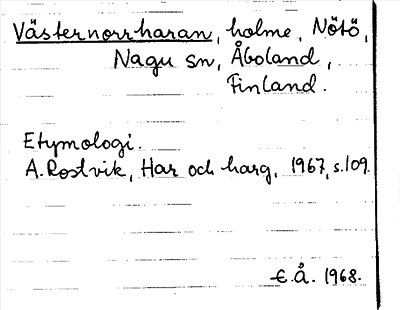 Västernorrharan, holme, Nötö,
Nagu sn, Åboland,
Finland.
Etymologi.
A. Rostvik, Har och harg, 1967, s. 109.
E.Å. 1968.